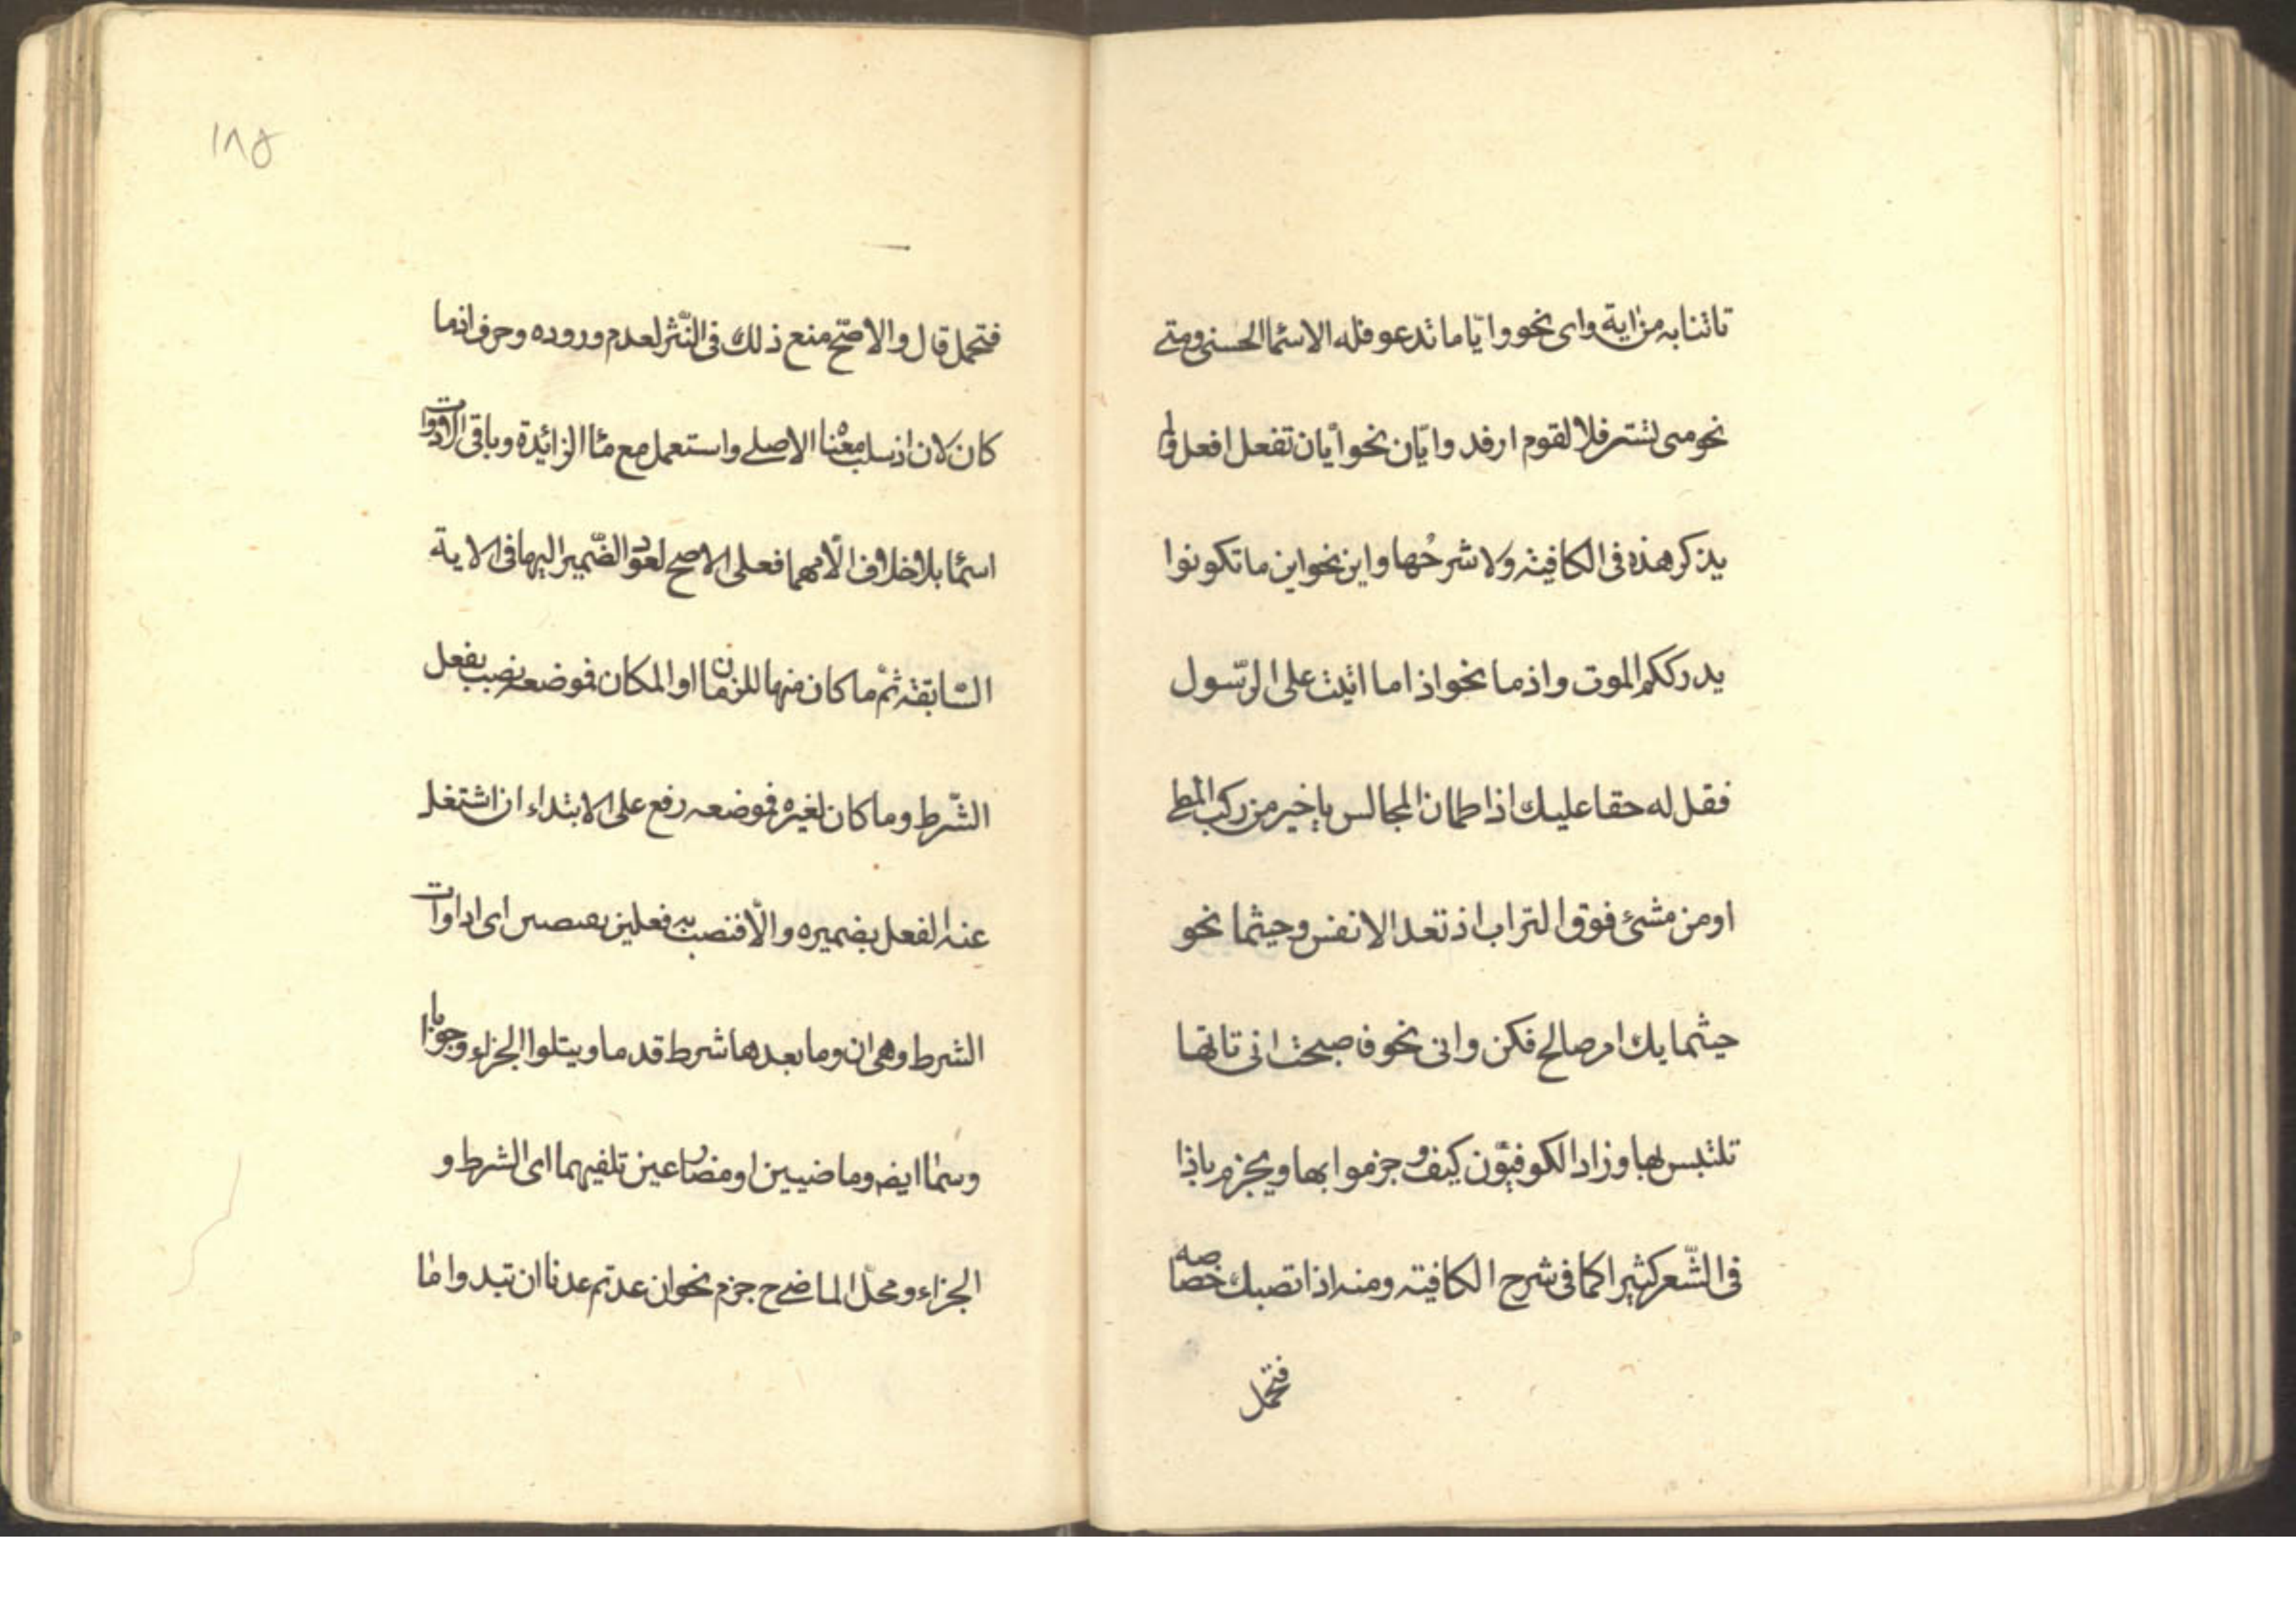 تاتنا به من اية واى نحو وايّا ما تدعو فله الاسما الحسنى ومتى
نحو متى تستر فلا لقوم ارفد وايّان نحو أيان تفعل افعل ولم
يذكر هذه فى الكافيته ولا شرحُها واين نحو اين ما تكونوا
يدرككم الموت واذما نحو اذاما اتيت على الرّسول
فقل له حقا عليك اذا طمان المجالس يا خير من ركب المطى
او من مشئ فوق التراب اذ تعد الانفس وحيثما نحو
حيثما يك امر صالح فكن وانى نحو فاصبحت انى تاتها
تلتبس بها وزاد الكوفيّون كيف وجزموا بها ويجزم باذا
فى الشّعر كثيرا كما فى شرح الكافيته ومنه اذا تصبك خصاصه
فتحمل
١٨٥
فتحمل قال والاصّح منع ذلك فى النّثر لعدم وروده وحرف اذما
كان لان اذ سلب معناه الاصلى واستعمل مع ما الزائيدة وباقى الادوات
اسما بلا خلاف الّا مهما فعلى الاصح لعود الضّمير اليها فى الاية
السّابقته ثمّ ما كان منها للزمان او المكان فموضعه نصب بفعل
الشّرط وما كان لغيره فموضعه رفع على الابتداء ان اشتغل
عنه الفعل بضميره والّا فنصب به فعلين يقتضين اى ادوات
الشرط وهى ان وما بعدها شرط قدما ويتلوا الجزاء وجوابا
وسما ايضه وما ضيين او مضارعين تلفيهما اى الشرط و
الجزاء ومحلّ الماضى ح جزم نحو ان عدتم عدنا ان تبدوا ما